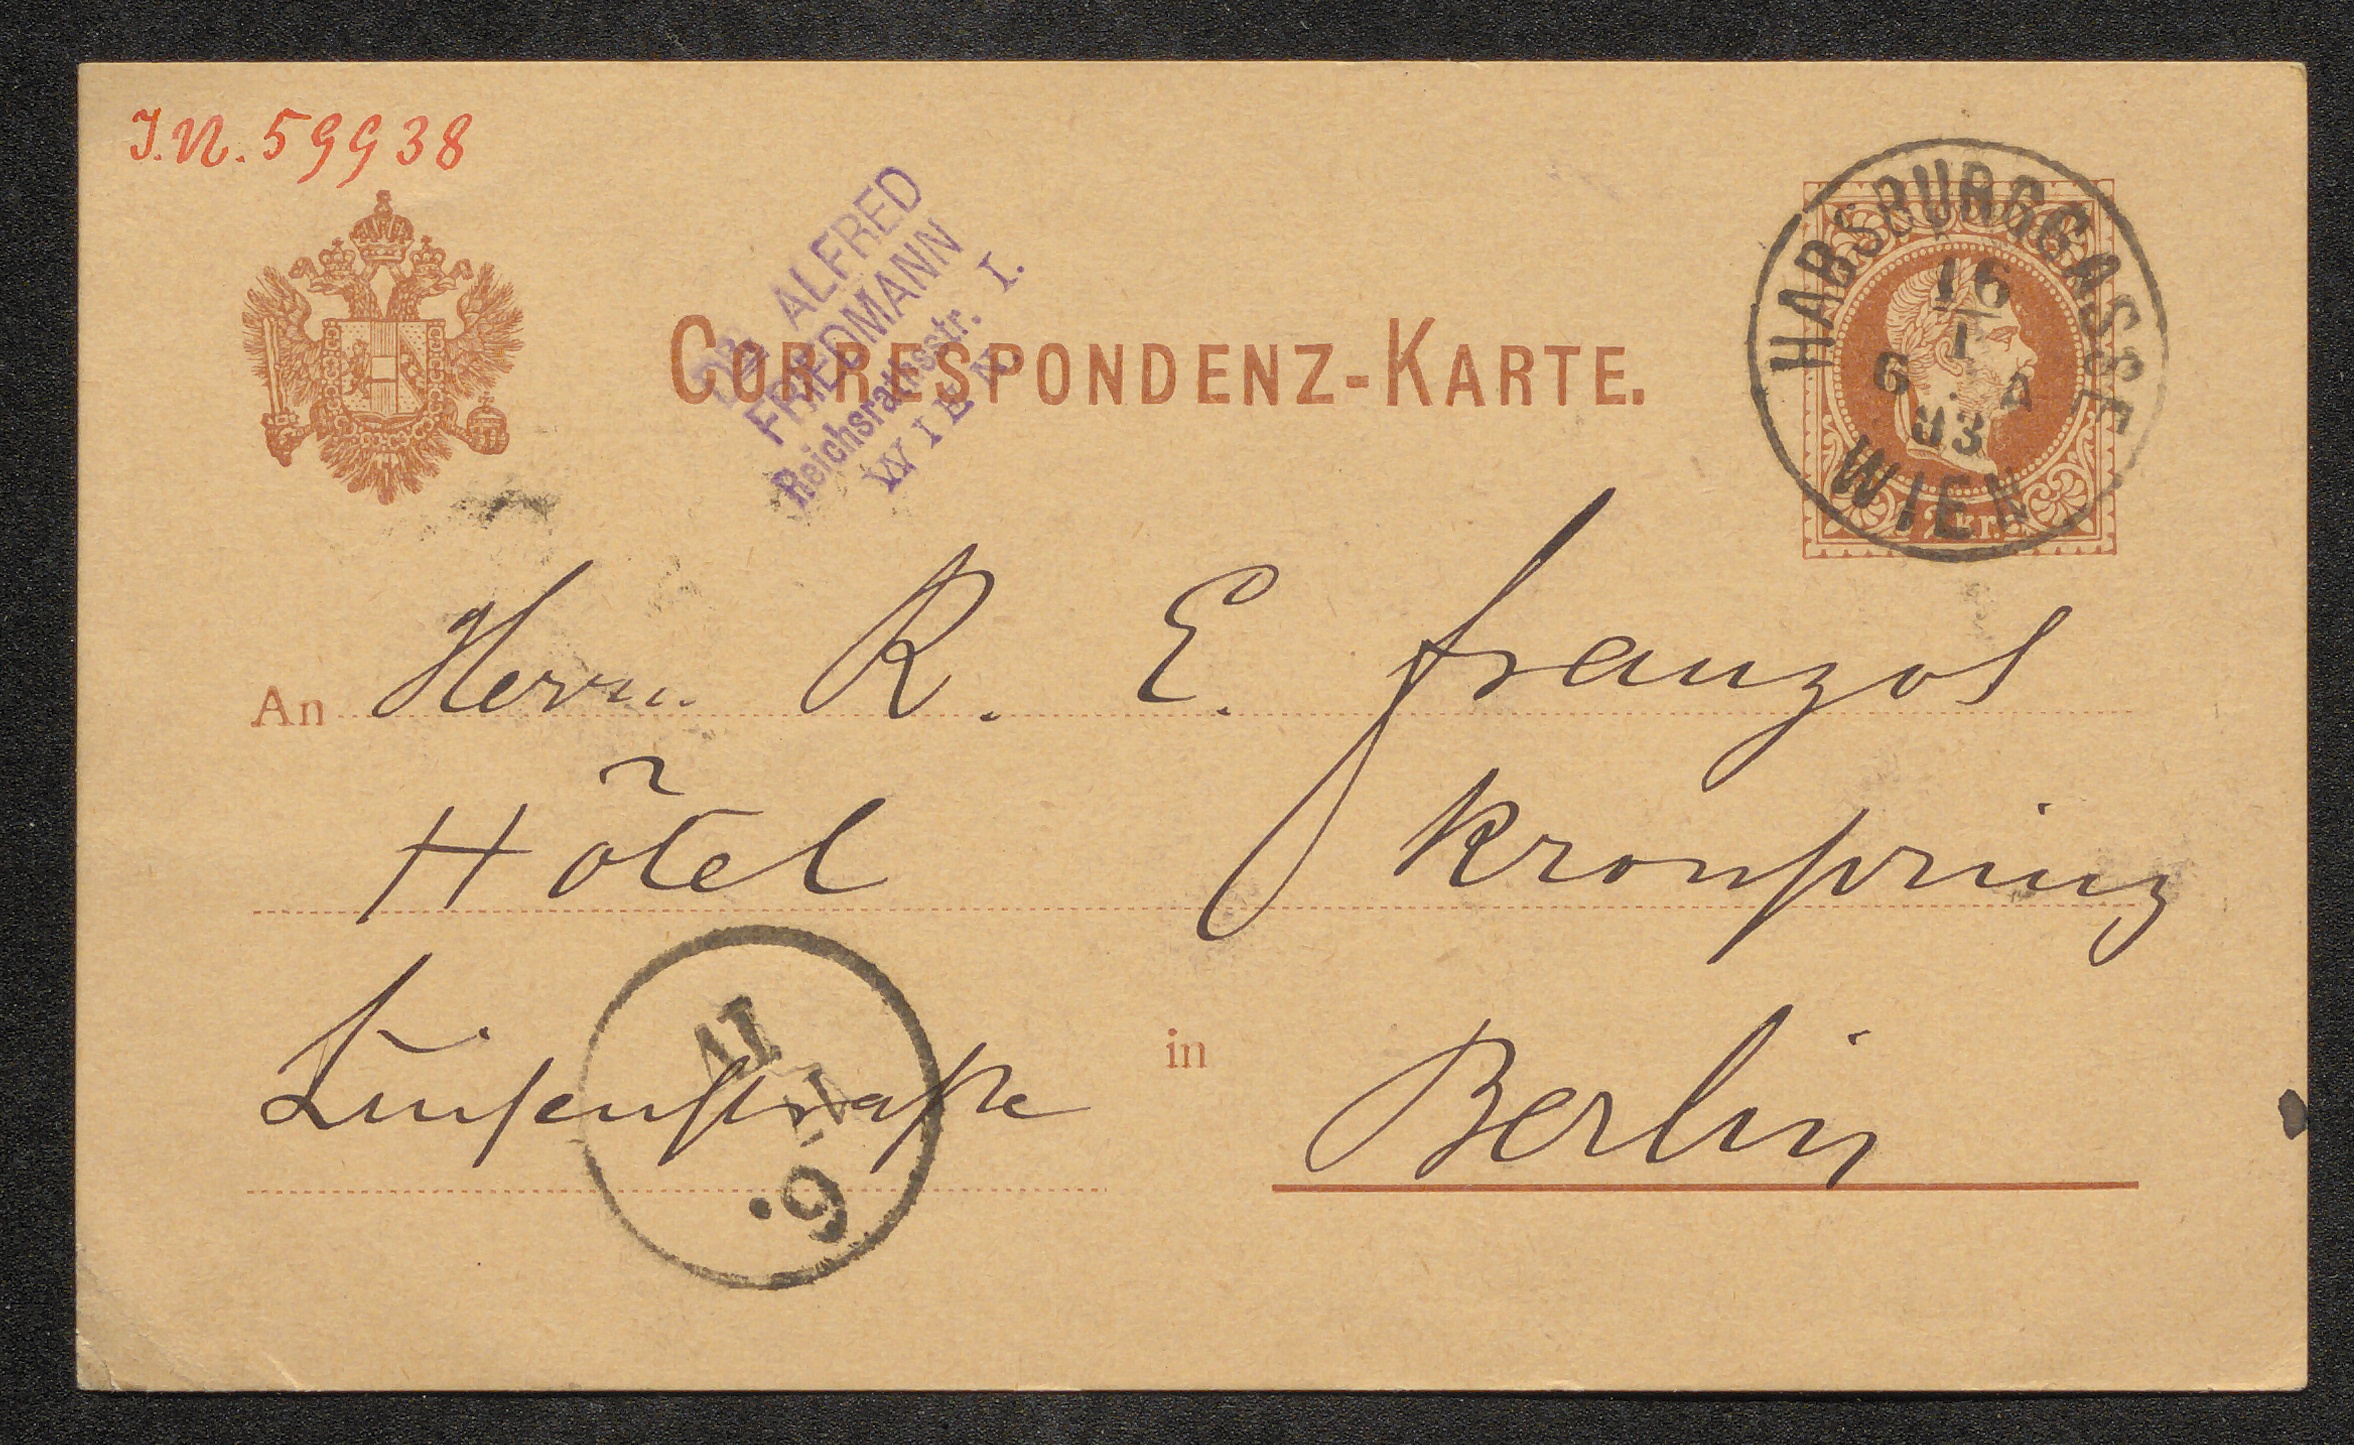 I.N. 59938
DR ALFRED
FRIEDMANN
Reichsrathsstr.
WIEN I.
CORRESPONDENZ-KARTE.
HABSBURGGASSE
16
1
6 A
83
WIEN
2 kr.
An Herrn K. E. Franzos
Hôtel Kronprinz
Luisenstraße in Berlin
17
1
6.